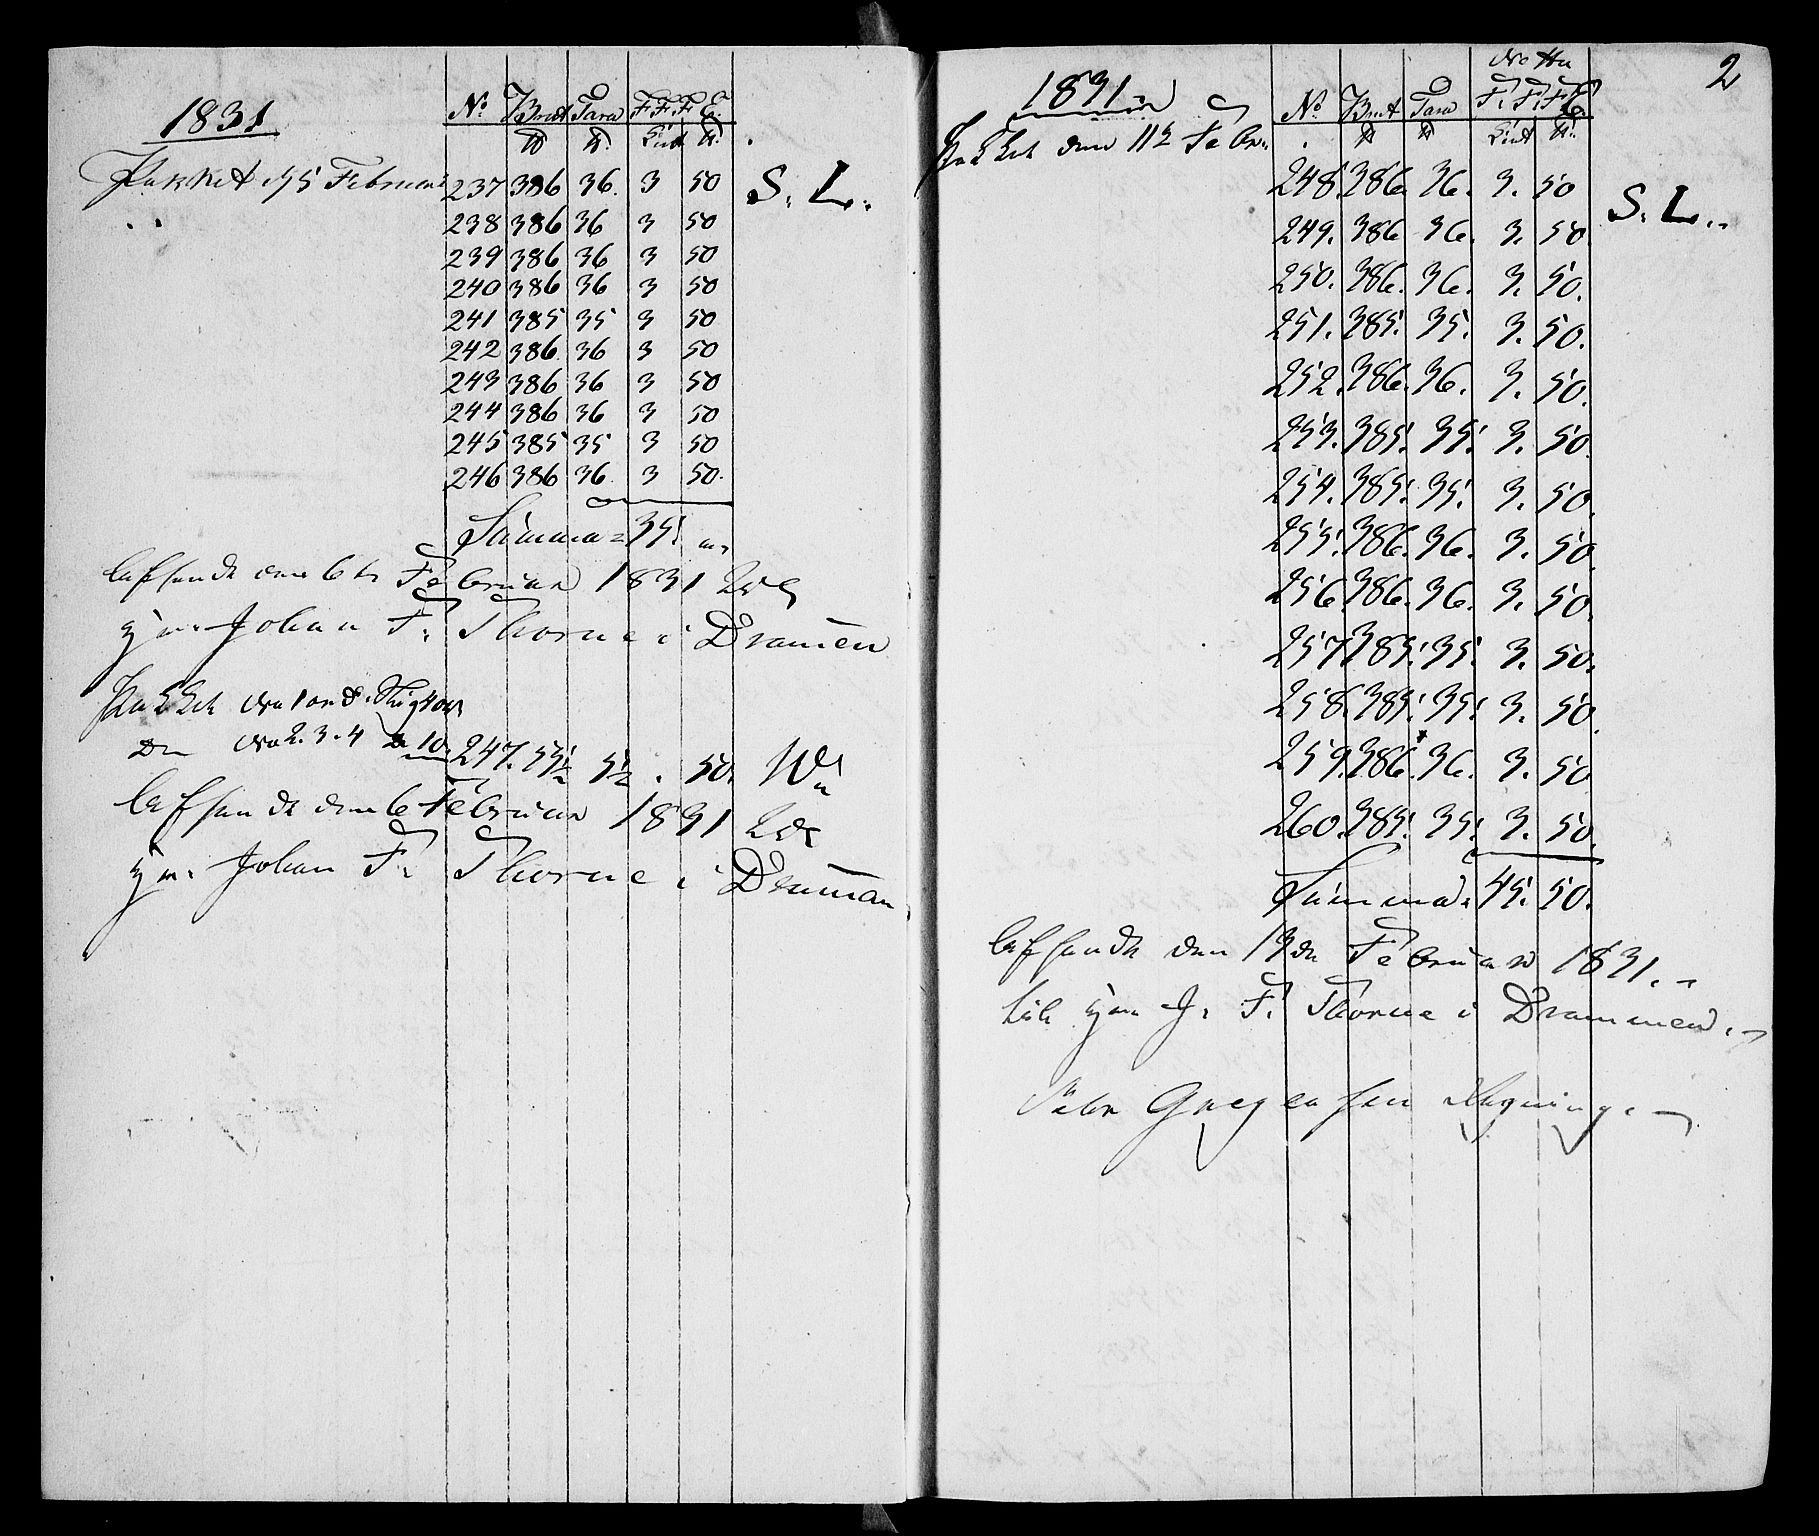 1831
No Brut Tara F.F.F.E.
℔ ℔. Cint ℔.
Pakket d 5 Februar 237 386 36. 3 50 S. L.
238 386 36 3 50
239 386 36 3 50
240 386 36 3 50
241 385 35 3 50
242 386. 36 3 50
243 386 36 3 50
244 386 36 3 50
245 385 35 3 50
246 386 36 3 50.
Summa = 35.
Affsendt den 6te Februar 1831
Johan F. Thorne i Dramen
Pakket
No 2. 3. 4 10 247. 55½ 5½ . 50.
Affsendt den 6 Februar 1831
Johan F. Thorne i Dramen
2
1831
Netto
No. Brut Tara F. F. F. E.
℔ ℔ Cint ℔.
Pakket den 11te Febr.
248. 386. 36. 3. 50 S. L.
249. 386 36. 3. 50
250. 386. 36. 3. 50.
251. 385. 35. 3. 50.
252. 386. 36. 3. 50.
253. 385. 35. 3. 50.
254. 385. 35. 3. 50.
255. 386. 36. 3. 50
256. 386. 36. 3. 50.
257 385. 35. 3. 50.
258. 385. 35. 3. 50
259. 386. 36. 3. 50
260. 385. 35. 3. 50.
Summa. 45. 50.
Affsendt den 13de Februar 1831.
til J. F. Thorne i Drammen.
Gregersen Regning.